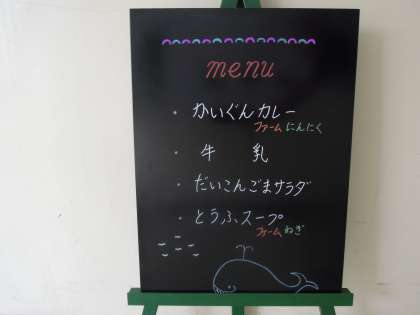 menu
・ かいぐんカレー
ファームにんにく
・ 牛 乳
・ だいこんごまサラダ
・ とうふスープ
ファームねぎ